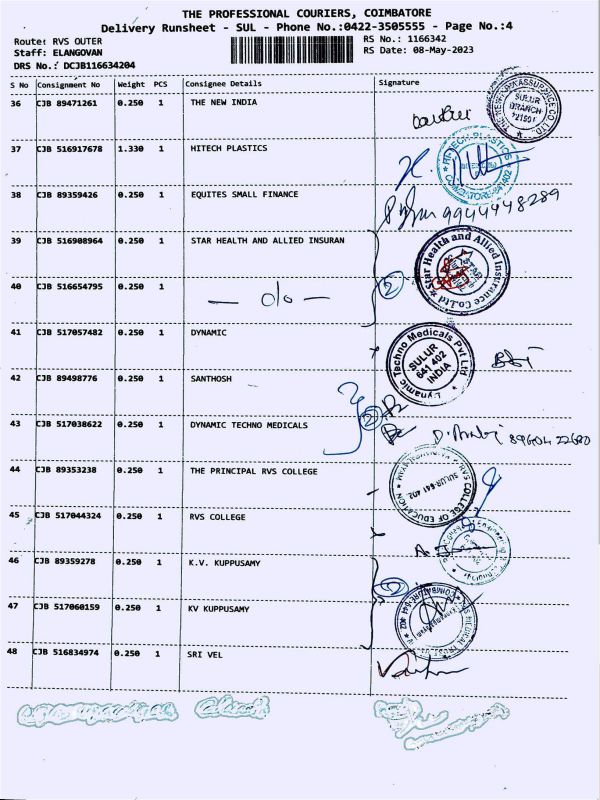 THE PROFESSIONAL COURIERS, COIMBATORE
Delivery Runsheet - SUL - Phone No.:0422-3505555 - Page No.:4
Route: RVS OUTER RS No.: 1166342
Staff: ELANGOVAN RS Date: 08-May-2023
DRS No.: DCJB116634204
S No Consignment No Weight PCS Consignee Details Signature
36 CJB 89471261 0.250 1 THE NEW INDIA
SULUR
BRANCH
37 CJB 516917678 1.330 1 HITECH PLASTICS
HITECH PLASTICS
COIMBATORE-641 402
38 CJB 89359426 0.250 1 EQUITES SMALL FINANCE
9944448289
39 CJB 516908964 0.250 1 STAR HEALTH AND ALLIED INSURAN
Star Health and Allied Insurance Co.Ltd
40 CJB 516654795 0.250 1 — do —
2
41 CJB 517057482 0.250 1 DYNAMIC
Dynamic Techno Medicals Pvt Ltd
SULUR
641 402
INDIA
42 CJB 89498776 0.250 1 SANTHOSH
2
43 CJB 517038622 0.250 1 DYNAMIC TECHNO MEDICALS
44 CJB 89353238 0.250 1 THE PRINCIPAL RVS COLLEGE
RVS COLLEGE OF EDUCATION
SULUR-641 402
45 CJB 517044324 0.250 1 RVS COLLEGE
46 CJB 89359278 0.250 1 K.V. KUPPUSAMY
47 CJB 517060159 0.250 1 KV KUPPUSAMY
48 CJB 516834974 0.250 1 SRI VEL